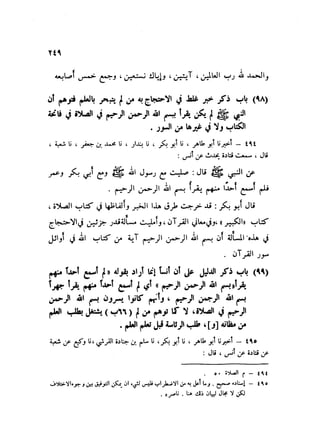 ٢٤٩
والحمد لله رب العالمين ، آمين ، وذلك بسند ، وجمع حسن أسانيد
(٩٨) باب ذكر خبر غلط في الاحتجاج به من لم يتبحر بالعلم فتوهم أن
النبي ﷺ لم يكن يقرأ بسم الله الرحمن الرحيم في الصلاة في فاتحة
الكتاب ولا في غيرها من السور .
٤٩٤ — أخبرنا أبو طاهر ، نا أبو بكر ، نا بندار ، نا محمد بن جعفر ، نا شعبة ،
قال ، سمعت قتادة يحدث عن أنس :
عن النبي ﷺ قال : صليت مع رسول الله ﷺ ومع أبي بكر وعمر
فلم أسمع أحداً منهم يقرأ بسم الله الرحمن الرحيم .
قال أبو بكر : قد خرجت طرق هذا الخبر وألفاظها في كتاب الصلاة ،
كتاب « الكبير » ، وفي معاني القرآن ، وأمليت مسألة قدر جزئين في الاحتجاج
في هذه المسألة أن بسم الله الرحمن الرحيم آية من كتاب الله في أوائل
سور القرآن .
(٩٩) باب ذكر الدليل على أن أنساً إنما أراد بقوله « لم أسمع أحداً منهم
يقرأ بسم الله الرحمن الرحيم » أي لم أسمع أحداً منهم يقرأ جهراً
بسم الله الرحمن الرحيم ، وأنهم كانوا يسرون بسم الله الرحمن
الرحيم في الصلاة، لا كما توهم من لم يشتغل بطلب العلم
من مظانه [و] طلب الرئاسة قبل تعلم العلم .
٤٩٥ — أخبرنا أبو طاهر ، نا أبو بكر ، نا سلم بن جنادة القرشي ، نا وكيع عن شعبة
عن قتادة عن أنس ، قال :
٤٩٤ — م الصلاة ٥٠ .